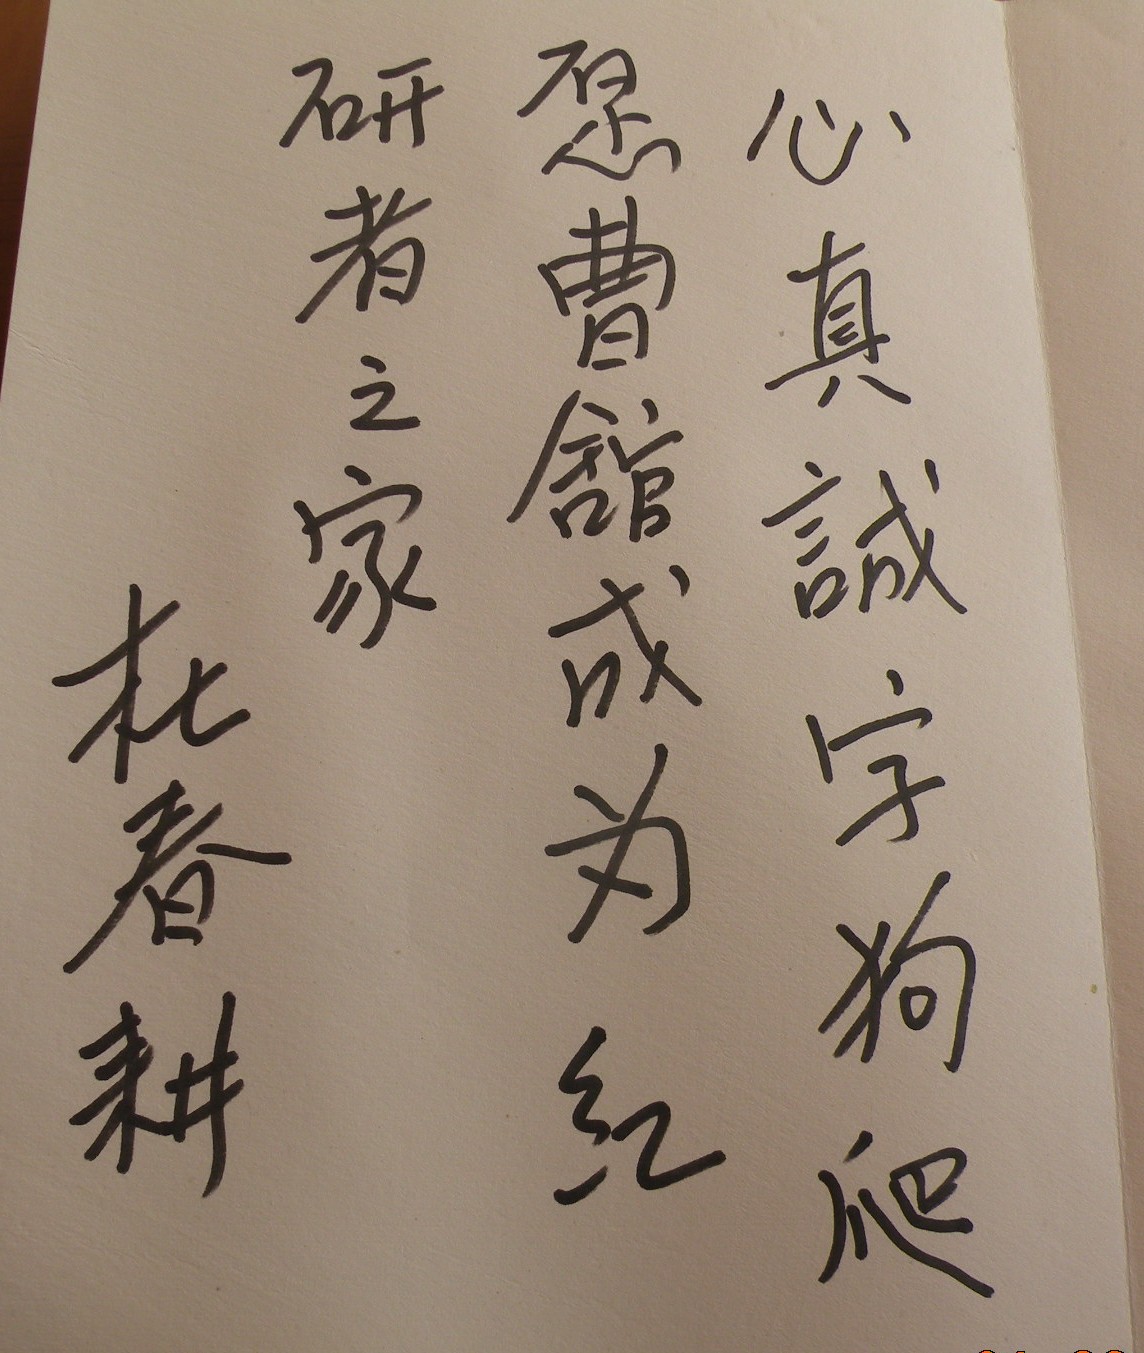 心真誠字狗爬
愿曹舘成为红
研者之家
杜春耕